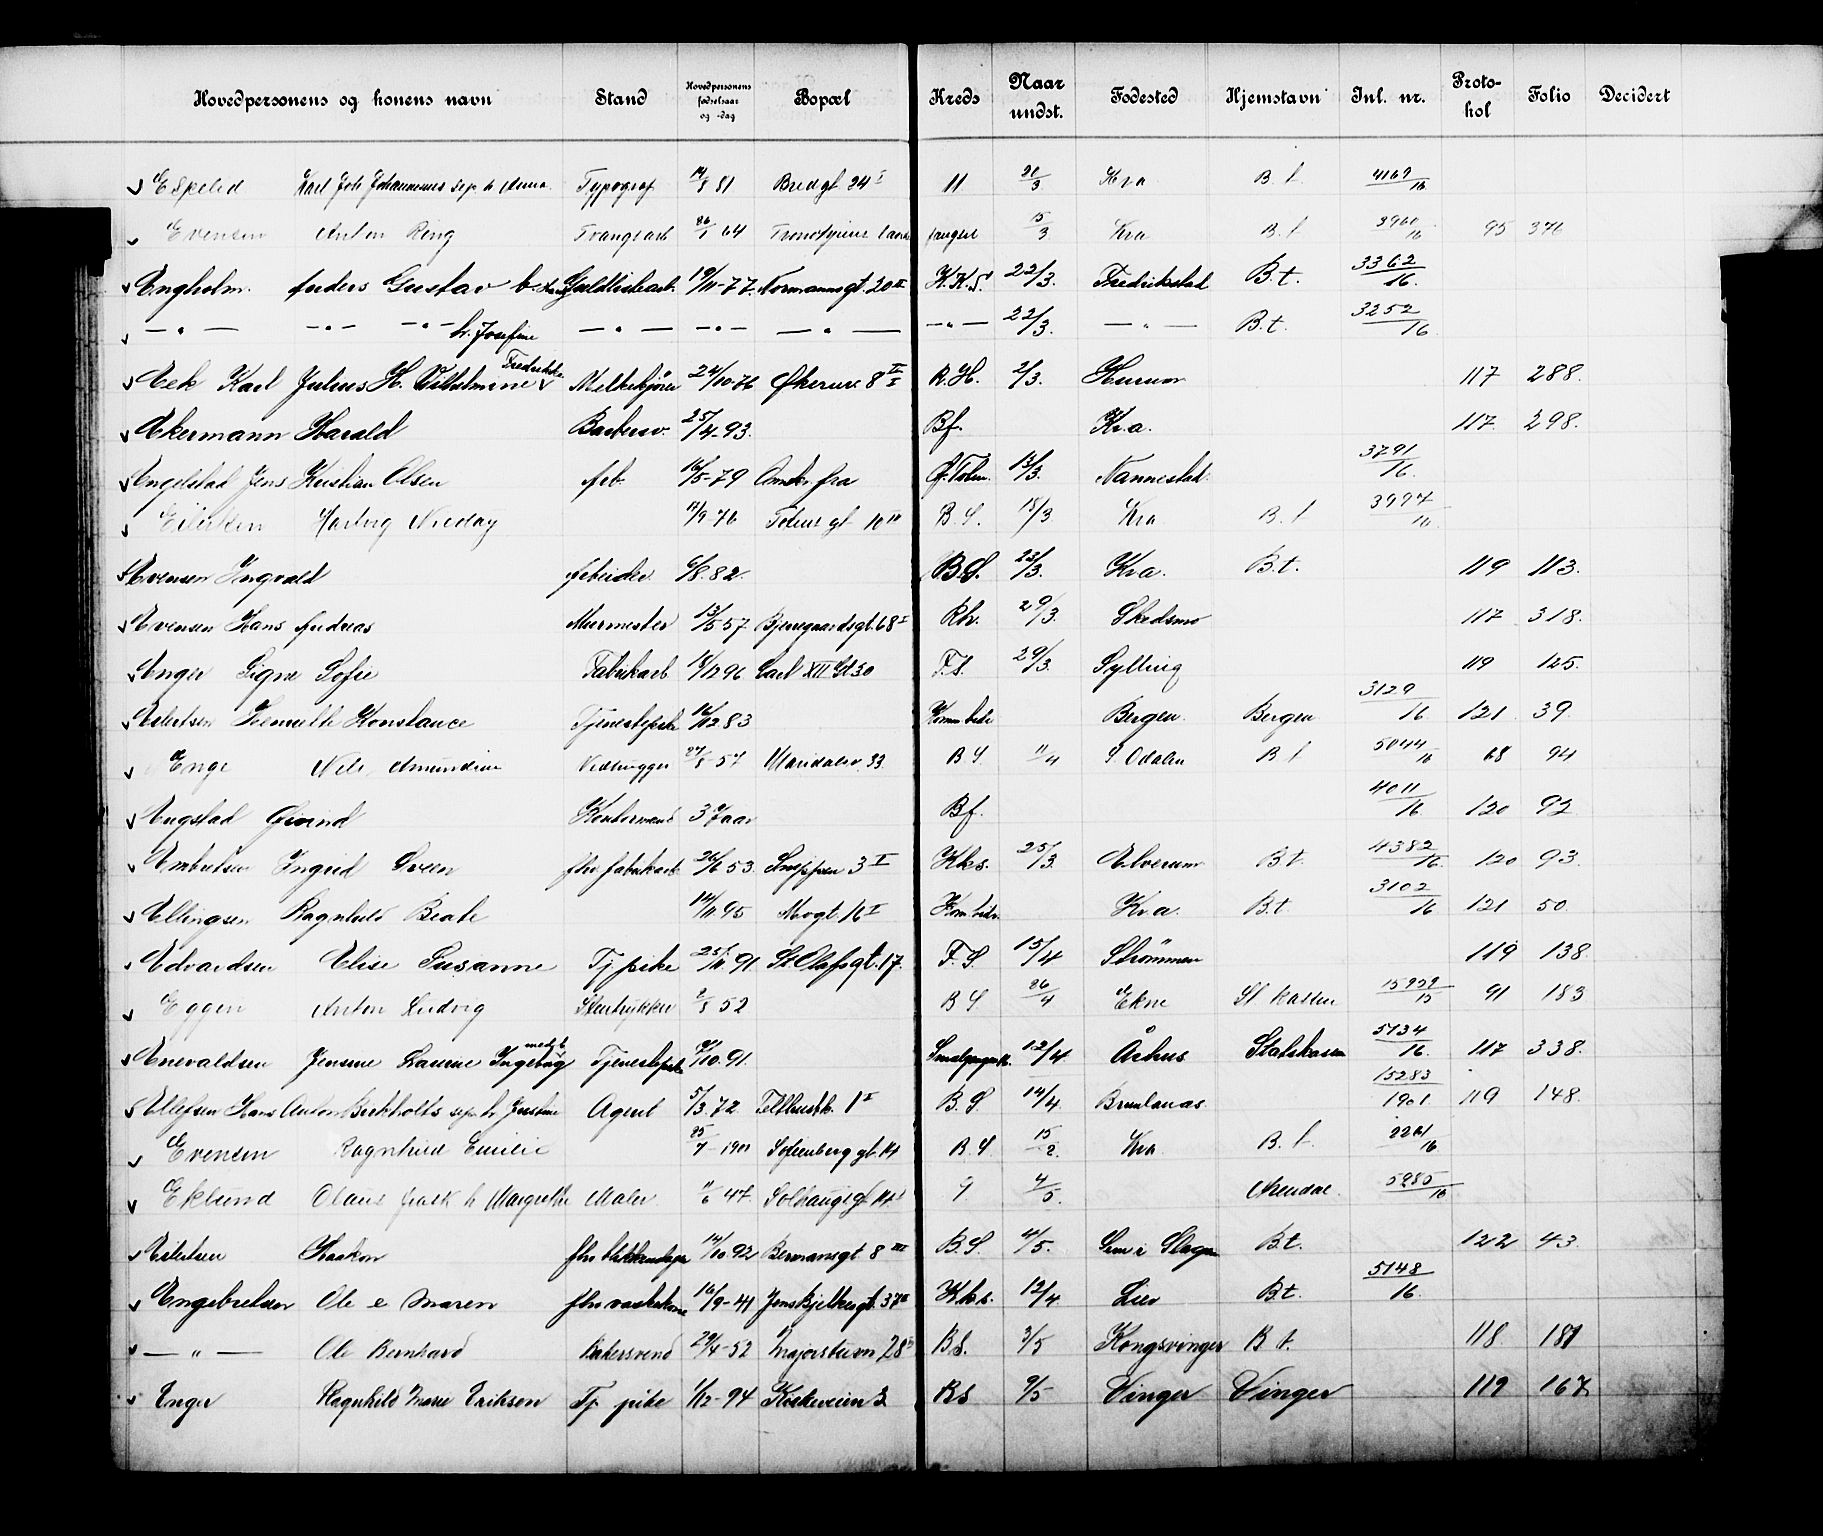 Hovedpersonens og konens navn Stand Hovedpersonens fødselsaar og -dag Bopæl Kreds Naar undst. Fødested Hjemstavn Inl. nr. Protokol Folio Decidert
Espelid Karl Joh Johannesen sep. h. Anna Typograf 14/8 81 Bredgt 24 I 11 21/3 Kra B. t 4169/16
Evensen Anton Ring Tvangsarb 26/1 64 fængsel 15/3 Kra B. t 3960/16 95 376
Engholm. Anders Gustav Guldlistearb. 19/11-77. Normannsgt. 20 II K.K.S. 22/3. Fredrikstad B.t. 3362/16.
— " — — " — — " — h. Josefine — " — — " — — " — — " — 22/3. — " — B.t. 3252/16
Eek Karl Julius H. Vilhelmine Fredrikke Melkekjører 24/10-76 Økernvn 8 II R.H. 2/3. Hurum 117 288.
Ekermann Harald Barbersv. 25/4.93. Bf. Kr.a. 117. 298.
Engelstad Jens Kristian Olsen arb. 16/5-79 fra 13/3. Nannestad. 3791/16.
Eilertsen Hartvig Nicolay 11/9-76 Totens gt 10 III B.S. 18/3. Kra B. t 3994/16
Evensen Ingvald Arbeider. 6/8.82. B.S. 23/3. Kr.a. B.t. 119 113.
Evensen Hans Andreas Murmester 13/5 57. Bjerregaardsgt. 68 I Rh. 29/3. Skedsmo 117 318.
Enger Signe Sofie Fabrikarb 18/12 96 Carl XII Gt 30 F.S. 29/3. Sylling 119 125.
Eilertsen Konstance Tjenestepike 16/12 83 Bergen. Bergen 3129/16 121. 39.
Enge Nils Amundsen Vedhugger 27/8-57 Maridalsv. 33 B S. 11/4 S. Odalen B t 5044/16 68 94
Engstad Øivind Kontormand 3 Jaar Bf. 4011/16. 120 92
Embretsen Ingrid Sveen fhv fabrikarb 26/6 53. 3 I Kks. 25/3. Elverum B.t. 4382/16. 120 93.
Ellingsen Ragnhild Beate 14/11 95 Mogt. 16 I Kr.a. B.t. 3102/16 121 50.
Edvardsen Elise Susanne Tj.pike 25/11.91. St. Olafsgt. 17. F.S. 15/4 Strømmen 119 138.
Eggen Anton Ludvig Stentrykker 2/8 52 B S 26/4 Ekne St kassen 15939/15 91 183
Enevaldsen Jensine Laurine Ingeborg Tjenestepike 9/10.91. 12/4 Århus Statskassen 5134/16. 117 338.
Ellefsen Hans Anton Birkholts sep. h. Justine Agent 5/3.72. Telthusbk. 1 I B.S. 14/4. Brunlanæs. 15283/1901. 119 148.
Evensen Ragnhild Emilie 25/7-1901 Sofienberg gt. 14 B.S. 15/2. Kra B. t. 2261/16
Eklund Olaus frask h Margrethe Maler 11/6 47. Solhaugsgt 14 I 9 4/5. Arendal. 5285/16
Eilertsen Haakon fhv 14/10 92 Bermansgt. 8 III B.S. 4/5. Sem i Slagen B.t. 122 43.
Engebretsen Ole e Maren fhv vaskekone 16/9-41 Jens Bjelkesgt. 37 II Kks. 12/4. Lier B.t. 5148/16.
— " — Ole Bernhard Bakersvend 29/4-52 Majorstuvn 28 B.S. 3/5 Kongsvinger B t. 118. 181
Enger Ragnhild Marie Eriksen Tj. pike 1/12-94 Kirkeveien 3 B.S 9/5 Vinger Vinger 119 167